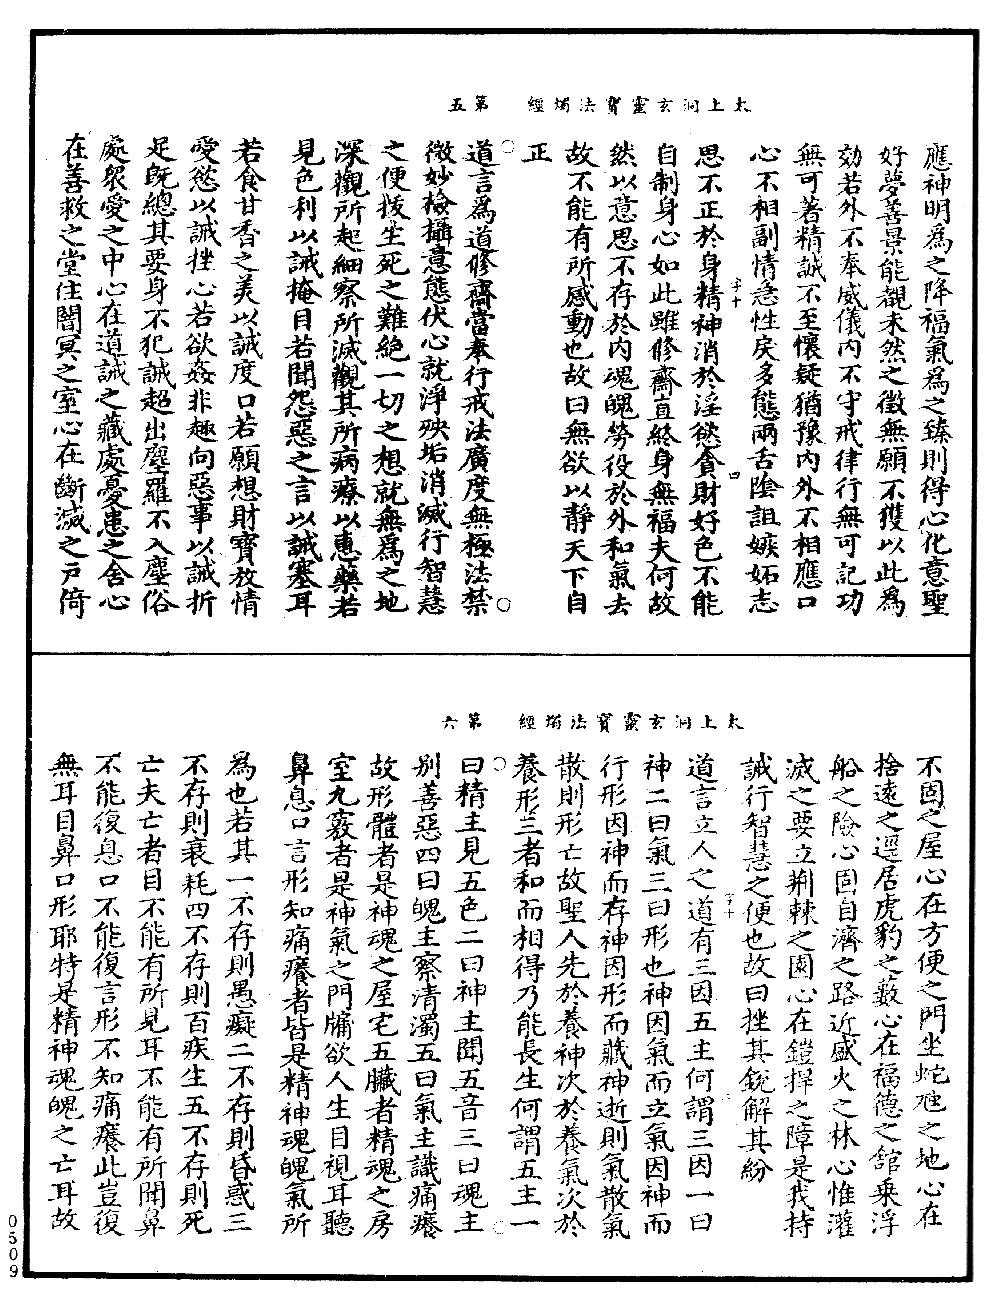 太上洞玄靈寶法燭經　第五
應神明為之降福氣為之臻則得心化意聖
好夢善景能覩未然之徵無願不獲以此為
効若外不奉威儀內不守戒律行無可記功
無可著精誠不至懷疑猶豫內外不相應口
心不相副情急性戾多態兩舌陰詛嫉妬志
思不正於身精神消於淫慾貪財好色不能
自制身心如此雖修齋直終身無福夫何故
然以意思不存於內魂魄勞役於外和氣去
故不能有所感動也故曰無欲以靜天下自
正
道言為道修齋當奉行戒法廣度無極法禁
微妙檢攝意態伏心就淨殃垢消滅行智慧
之便拔生死之難絕一切之想就無為之地
深觀所起細察所滅觀其所病療以惠藥若
見色利以誡掩目若聞怨惡之言以誡塞耳
若食甘香之美以誡度口若願想財寶放情
愛慾以誡挫心若欲姦非趣向惡事以誡折
足既總其要身不犯誡超出塵羅不入塵俗
處眾愛之中心在道誡之藏處憂患之舍心
在善救之堂住闇冥之室心在斷滅之戶倚
字十
四
太上洞玄靈寶法燭經　第六
不固之屋心在方便之門坐蛇虺之地心在
捨遠之逕居虎豹之藪心在福德之館乘浮
船之險心固自濟之路近盛火之林心惟灌
滅之要立荊棘之園心在鎧捍之障是我持
誡行智慧之便也故曰挫其銳解其紛
道言立人之道有三因五主何謂三因一曰
神二曰氣三曰形也神因氣而立氣因神而
行形因神而存神因形而藏神逝則氣散氣
散則形亡故聖人先於養神次於養氣次於
養形三者和而相得乃能長生何謂五主一
曰精主見五色二曰神主聞五音三曰魂主
別善惡四曰魄主察清濁五曰氣主識痛癢
故形體者是神魂之屋宅五臟者精魂之房
室九竅者是神氣之門牖欲人生目視耳聽
鼻息口言形知痛癢者皆是精神魂魄氣所
為也若其一不存則愚癡二不存則昏惑三
不存則衰耗四不存則百疾生五不存則死
亡夫亡者目不能有所見耳不能有所聞鼻
不能復息口不能復言形不知痛癢此豈復
無耳目鼻口形耶特是精神魂魄之亡耳故
字十
0509